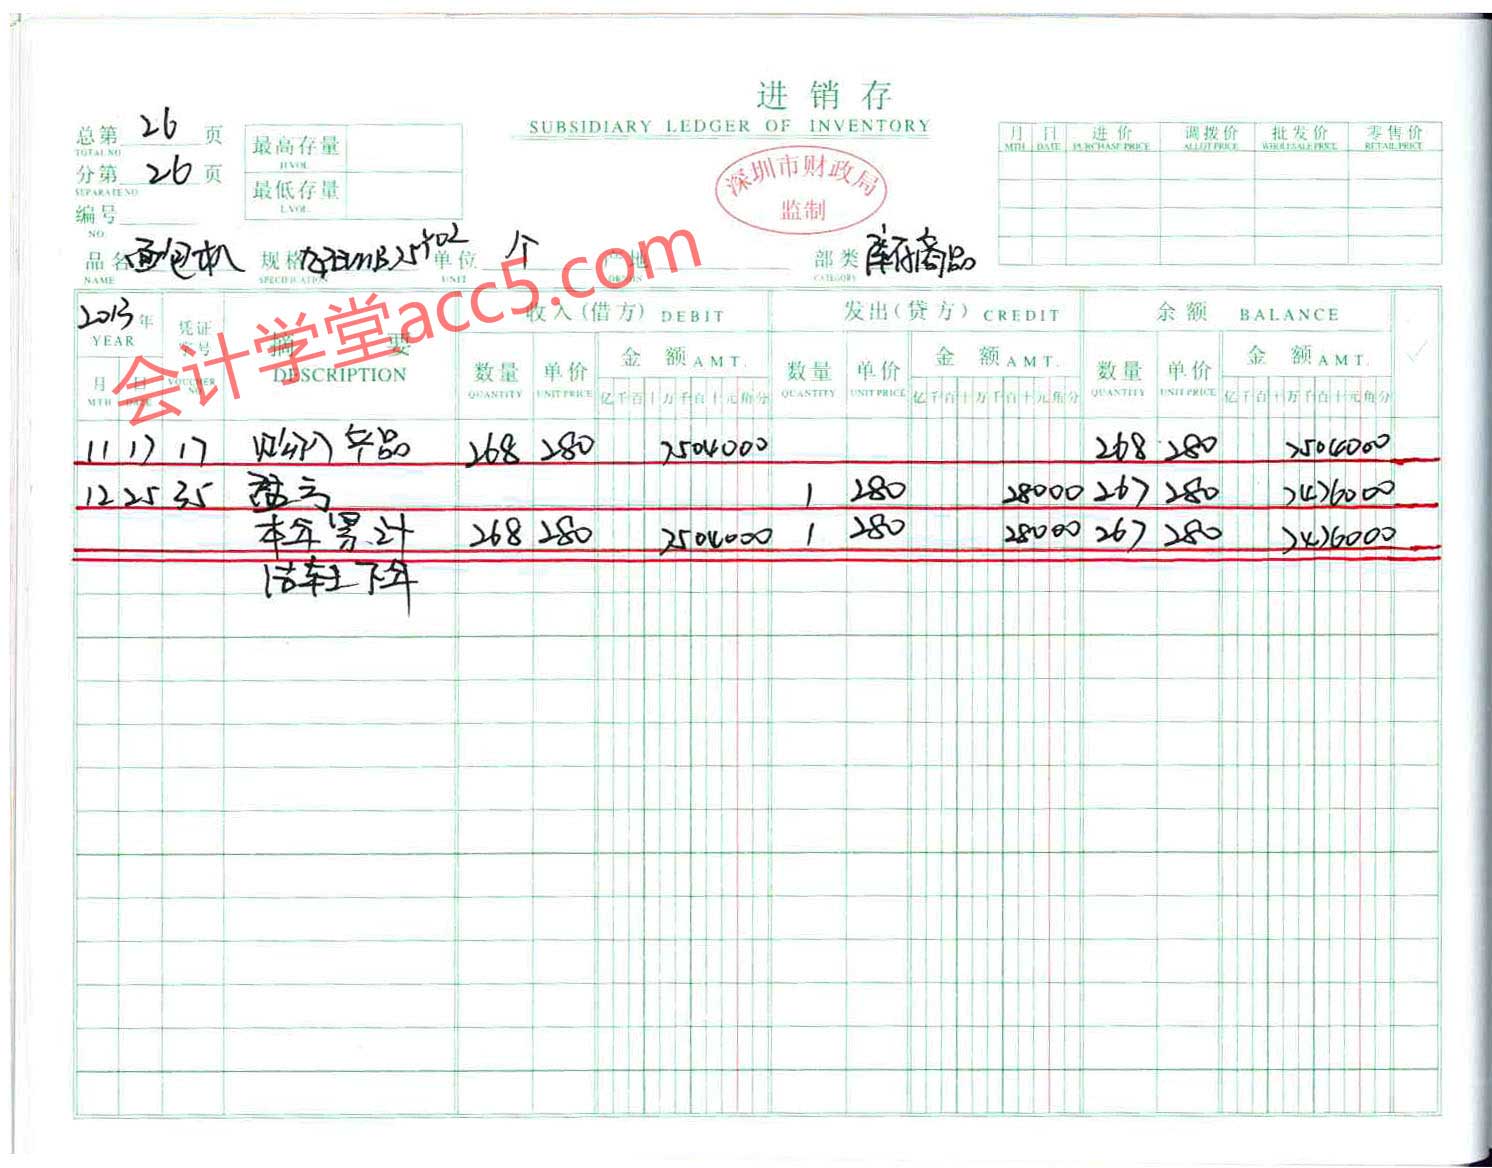 进销存
SUBSIDIARY LEDGER OF INVENTORY
总第 26 页
TOTAL NO
分第 26 页
SEPARATE NO
编号
NO.
最高存量
H.VOL.
最低存量
L.VOL.
深圳市财政局
监制
月 日 进价 调拨价 批发价 零售价
MTH DATE PURCHASE PRICE ALLOT PRICE WHOLESALE PRICE RETAIL PRICE
品名 面包机 规格 单位 个 产地 部类 库存商品
NAME SPECIFICATION UNIT ORIGIN CATEGORY
会计学堂acc5.com
2013 年 凭证 摘要 收入(借方) DEBIT 发出(贷方) CREDIT 余额 BALANCE
YEAR 字号 DESCRIPTION
月 日 VOUCHER NO. 数量 单价 金额 AMT. 数量 单价 金额 AMT. 数量 单价 金额 AMT.
MTH DATE QUANTITY UNIT PRICE 亿千百十万千百十元角分 QUANTITY UNIT PRICE 亿千百十万千百十元角分 QUANTITY UNIT PRICE 亿千百十万千百十元角分
11 17 17 268 280 7504000 268 280 7504000
12 25 35 盘亏 1 280 28000 267 280 7476000
本年累计 268 280 7504000 1 280 28000 267 280 7476000
结转下年